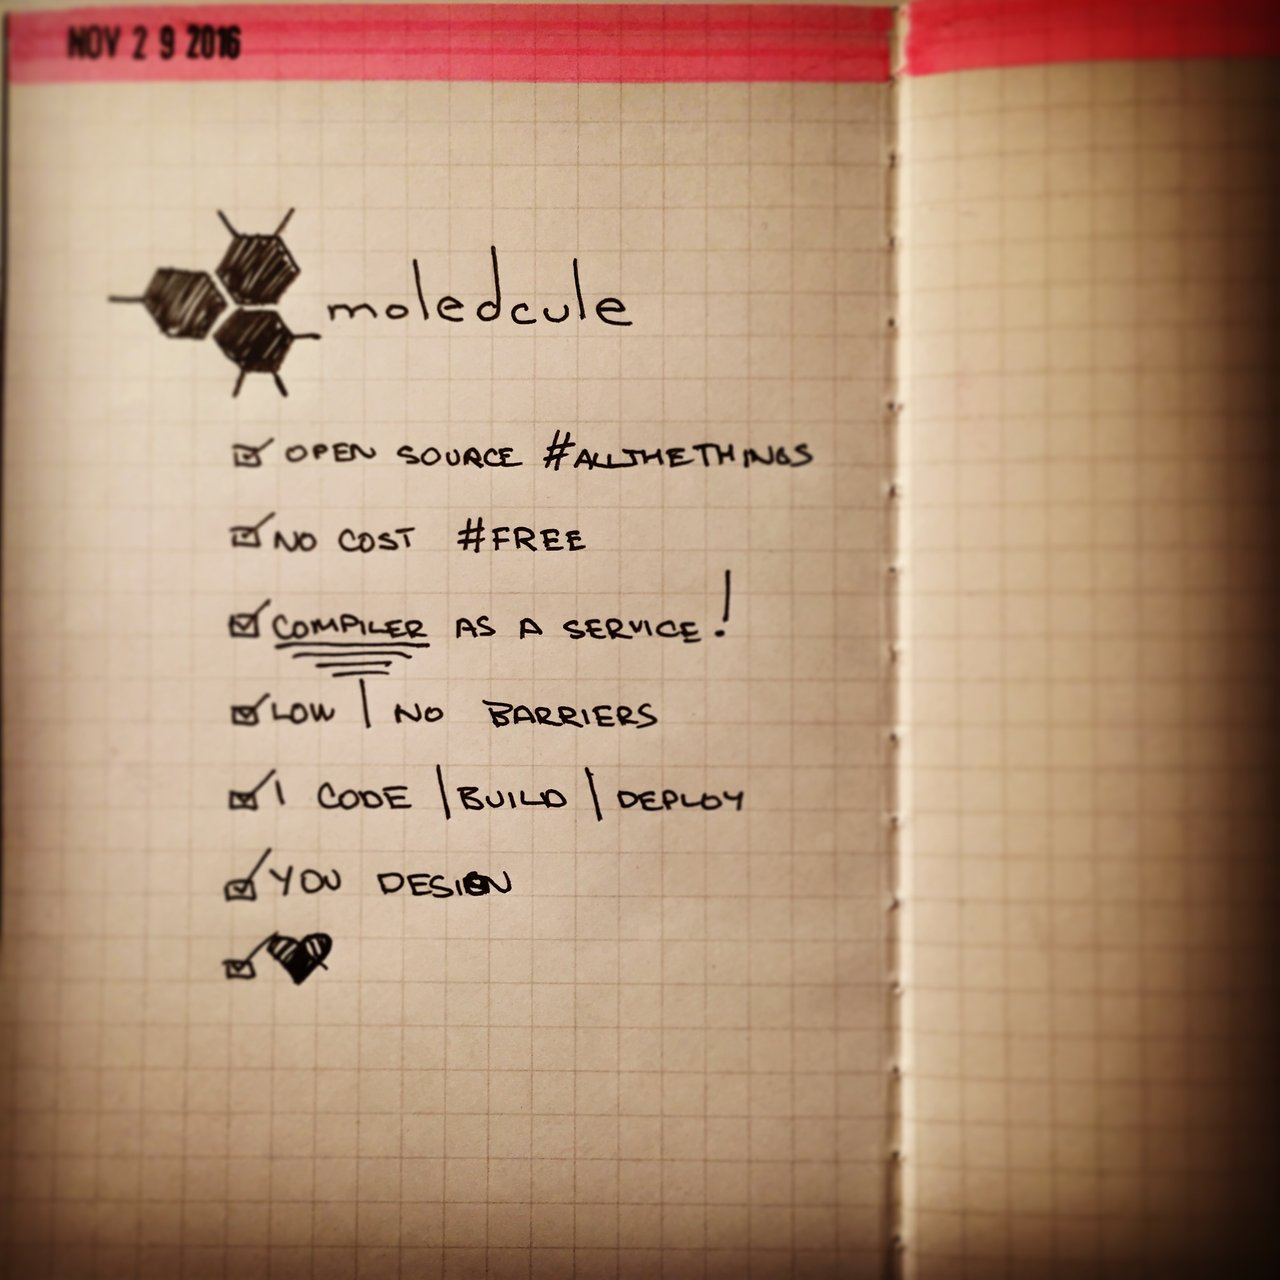 NOV 29 2016
moledcule
OPEN SOURCE #ALLTHETHINGS
NO COST #FREE
COMPILER AS A SERVICE!
LOW | NO BARRIERS
1 CODE | BUILD | DEPLOY
YOU DESIGN